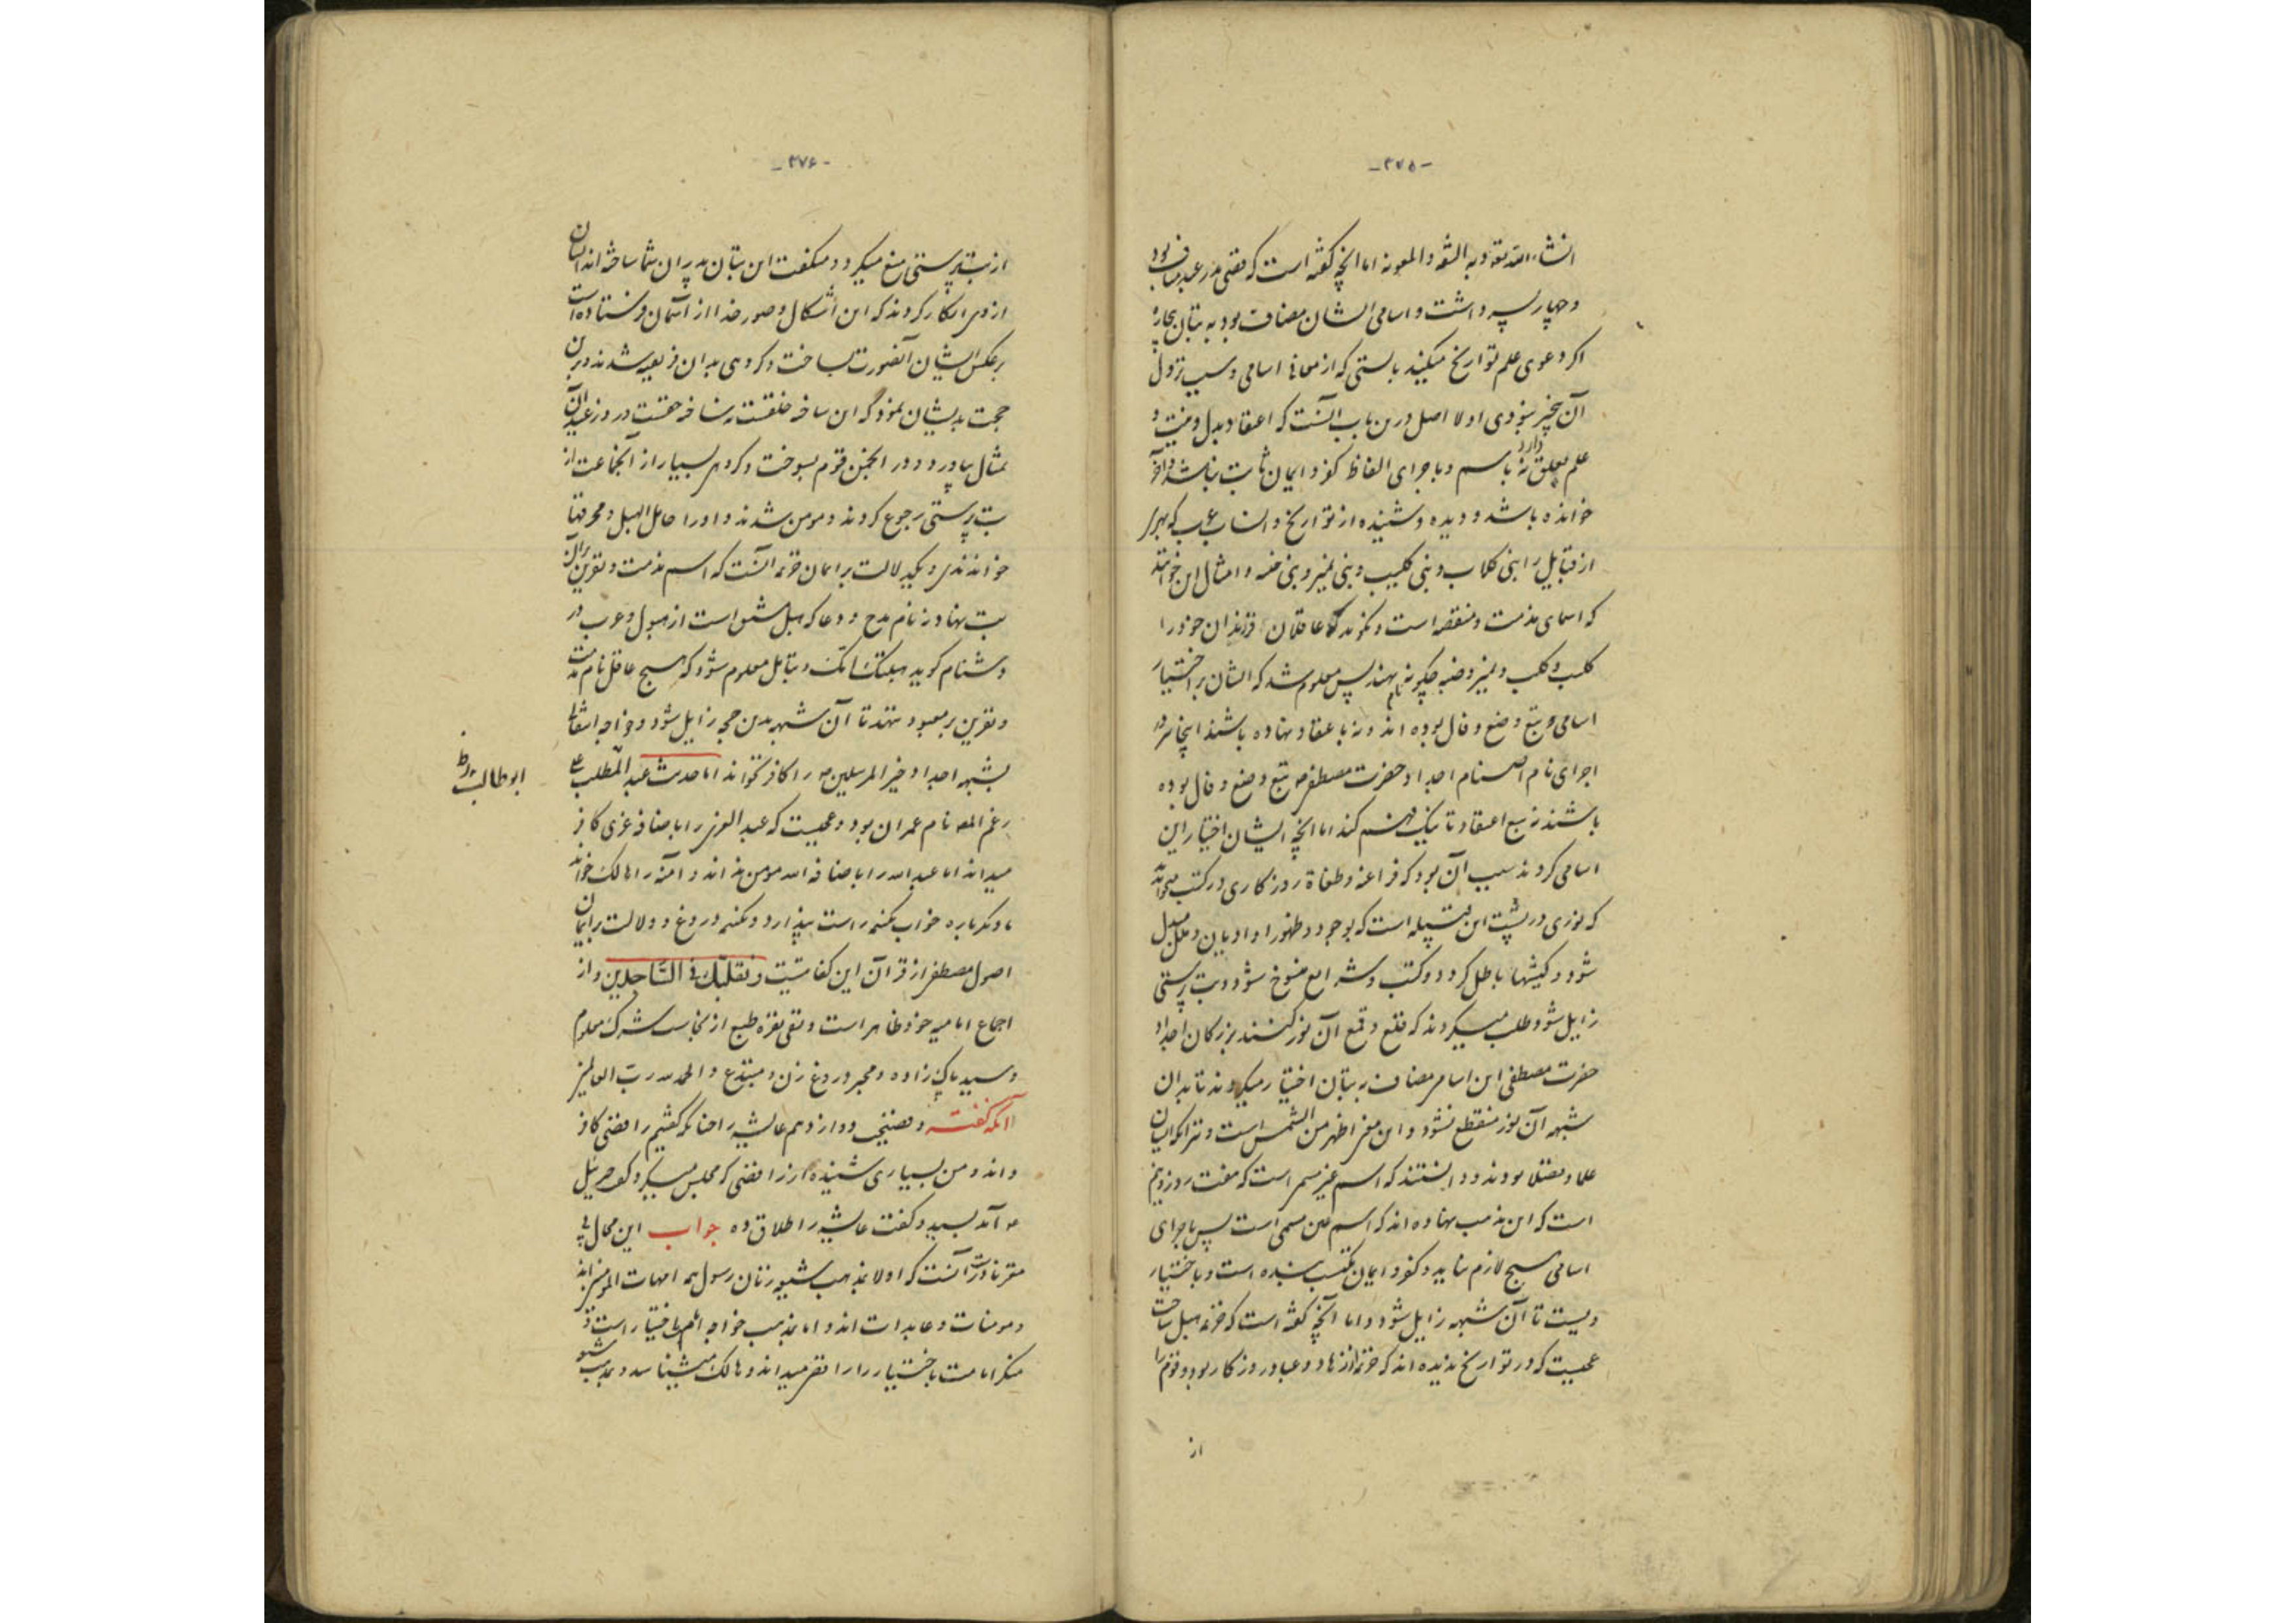 -۳۷۵-
انشاء الله تعالی و به الثقه و المعونه اما آنچه گفته است که قصی پدر عبد مناف بود
و چهار پسر داشت و اسامی ایشان مضاف بود به بتان بیچاره
اگر دعوی علم تواریخ میکنید بایستی که از معانی اسامی و سبب نزول
آن بیخبر نبودی اولا اصل درین باب آنست که اعتقاد بدل و نیت و
علم تعلق دارد نه باسم و باجرای الفاظ کفر و ایمان ثابت نباشد و آخر
خوانده باشد و دیده و شنیده از تواریخ و انساب عرب که بهری
از قبایل را بنی کلاب و بنی کلیب و بنی نمیر و بنی ضبه و امثال این خوانند
که اسمای مذمت و منقصه است و نگویند که عاقلان فرزندان خود را
کلب و کلیب و نمیر و ضبه چگونه نام نهند پس معلوم شد که ایشان بر اختیار
اسامی تبع وضع و فال بوده اند و نه باعتقاد نهاده باشند اینجا نیز در
اجرای نام اصنام اجداد حضرت مصطفی ص تبع وضع و فال بوده
باشند نه تبع اعتقاد تا نیک فهم کند اما آنچه ایشان اختیار این
اسامی کردند سبب آن بود که فراعنه و طغاة روزگاری در کتب میخوانند
که نوری در پشت این قبیله است که بوجود و ظهور او ادیان و ملل مبدل
شود و کیشها باطل گردد و کتب و شرایع منسوخ شود و بت پرستی
زایل شود و طلب میکردند که قلع و قمع آن نور کنند بزرگان اجداد
حضرت مصطفی این اسامی مضاف به بتان اختیار میکردند تا بدان
شبهه آن نور منقطع نشود و این معنی اظهر من الشمس است و نیز آنکه ایشان
علما و عقلا بودند و دانستند که اسم غیر مسمی است
است که این مذهب نهاده اند که اسم عین مسمی است پس باجرای
اسامی هیچ لازم نیاید و کفر و ایمان مکتسب بنده است و باختیار
ویست تا آن شبهه زایل شود و اما آنچه گفته است که خزیمه هبل ساخت
عجبست که در تواریخ ندیده اند که خزیمه از زهاد و عباد روزگار بود و قوم را
از
-۳۷۶-
از بت پرستی منع میکرد و میگفت این بتان پدران شما ساخته اند ایشان
از وی انکار کردند که این اشکال و صور خدا از آسمان فرستاده است
بر عکس ایشان آنصورت بساخت و گروهی بدان فریفته شدند و بر آن
حجت بدیشان نمود که این ساخته خلقست نه ساخته حقست و در روز عید آن
تمثال بیاورد و در انجمن قوم بسوخت و گروهی بسیار از آنجماعت از
بت پرستی رجوع کردند و مومن شدند و او را حامل الهبل و محرقها
خواندندی و دیگر دلالت بر ایمان خزیمه آنست که اسم مذمت و نفرین بر آن
بت نهاد نه نام مدح و دعا که هبل مشتق است از هبول و عرب در
دشنام گوید هبلتک امک و بتامل معلوم شود که هیچ عاقل نام مذمت
و نفرین بر معبود ننهد تا آن شبهه بدین حجه زایل شود و خواجه انتقالی
بشبهه اجداد خیر المرسلین ص را کافر نخواند اما حدیث عبد المطلب علی
رغم نام عمران بود و عجبست که عبد العزی را باضافه عزی کافر
میداند اما عبد الله را باضافه الله مومن نداند و آمنه را هالک خواند
تا دیگر باره خواب یکنیمه راست پندارد و یکنیمه دروغ و دلالت بر ایمان
اصول مصطفی از قرآن این کفایتست و تقلبک فی الساجدین و از
اجماع امامیه خود ظاهر است و نقی نقره طبع از نجاست شرک معلوم
و سید پاک زاده و مجبر دروغ زن و مبتدع و الحمد لله رب العالمین
آنکه گفته و فضیحت دوازدهم عایشه را چنانکه گفتیم رافضی کافر
داند و من بسیاری شنیده ام از رافضی که مجلس میگرد که جبرئیل
آمد بسید و گفت عایشه را طلاق ده جواب این محال بی
مغز نادرست آنست که اولا بمذهب شیعه زنان رسول همه امهات المومنین اند
و مومنات و عابدات اند و اما بمذهب خواجه امام باختیار است و
منکر امامت باختیار را رافضی میداند و هالک میشناسد و بمذهب شیعه
ابوطالب ظ